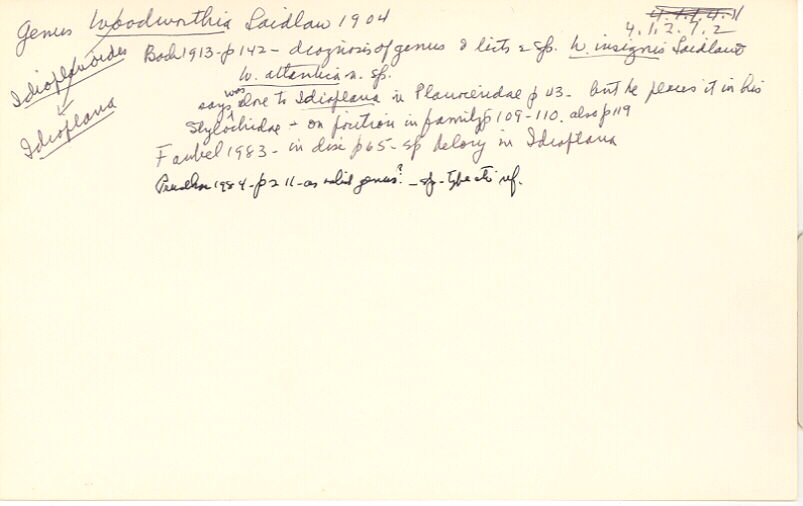 Genus Woodworthia Laidlaw 1904
4.1.1.4.11
4.1.2.7.2
Idioplanoides
Idioplana
Bock 1913 - p 142 - diagnosis of genus & lists 2 sp. W. insignis Laidlaw &
W. atlantica n. sp.
says was close to Idioplana in Planoceridae p 43 - but he places it in his
Stylochidae + on position in family p 109-110. also p 119
Faubel 1983 - in disc p 65 - sp belong in Idioplana
Prudhoe 1984 - p 211 - as valid genus? - sp - type etc ref.